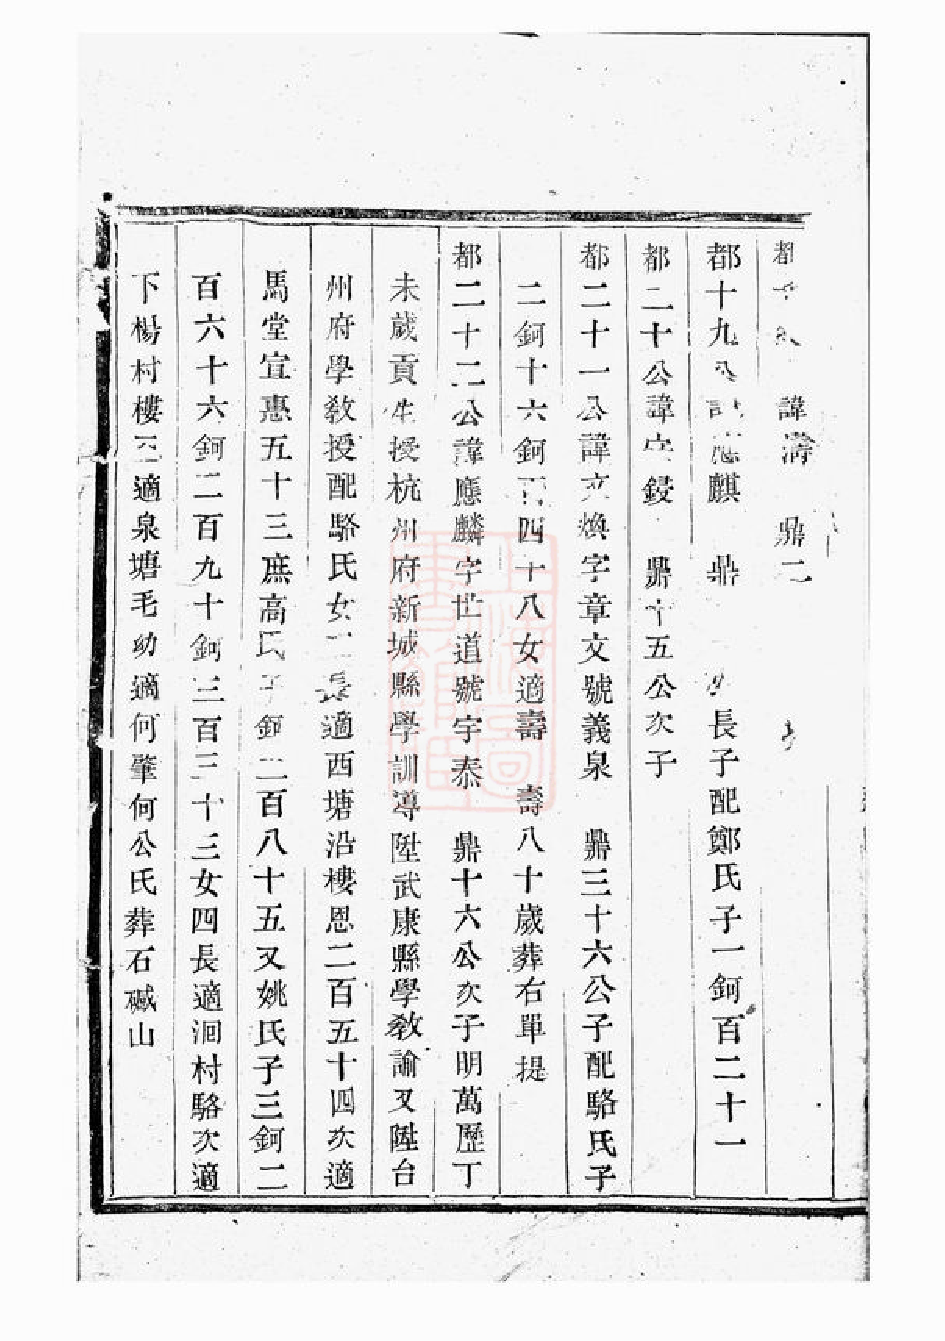 都 諱濤 鼎二
都十九 麒 鼎 長子配鄭氏子一鈳百二十一
都二十公諱 鋄 鼎十五公次子
都二十一公諱文煥字章文號義泉 鼎三十六公子配駱氏子
二鈳十六鈳 四十八女適壽 壽八十歲葬右單提
都二十二公諱應麟字世道號宇泰 鼎十六公次子明萬歷丁
未歲貢生授杭州府新城縣學訓導陞武康縣學敎諭又陞台
州府學敎授配駱氏女 長適西塘沿樓恩二百五十四次適
馬堂宣惠五十三庶高氏子鈳二百八十五又姚氏子三鈳二
百六十六鈳二百九十鈳三百三十三女四長適洄村駱次適
下楊村樓三適泉塘毛幼適何肇何公氏葬石碱山